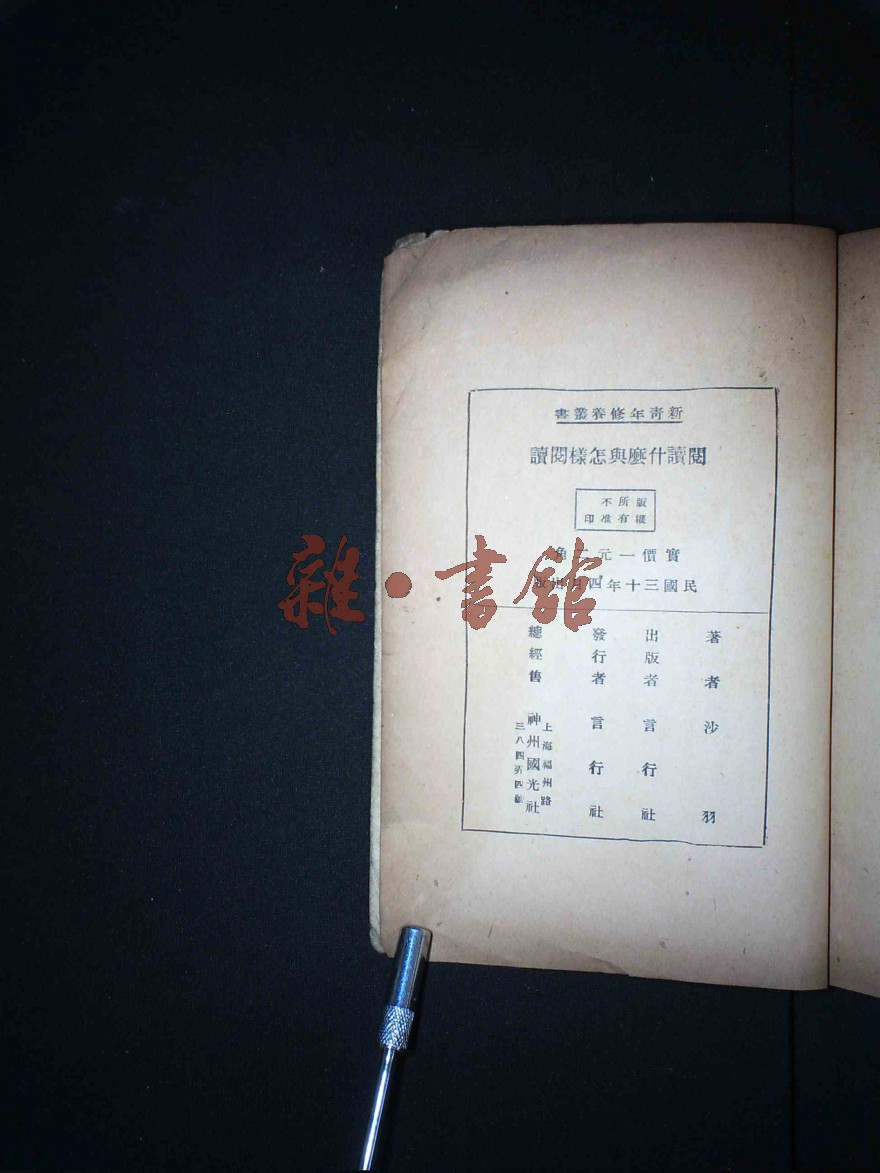 新青年修養叢書
閱讀什麽與怎樣閱讀
版權
所有
不准
印
實價一元二角
民國三十年四月出版
著者 沙羽
出版者 言行社
發行者 言行社
總經售 神州國光社
上海福州路
三八四弄四號
雜·書館